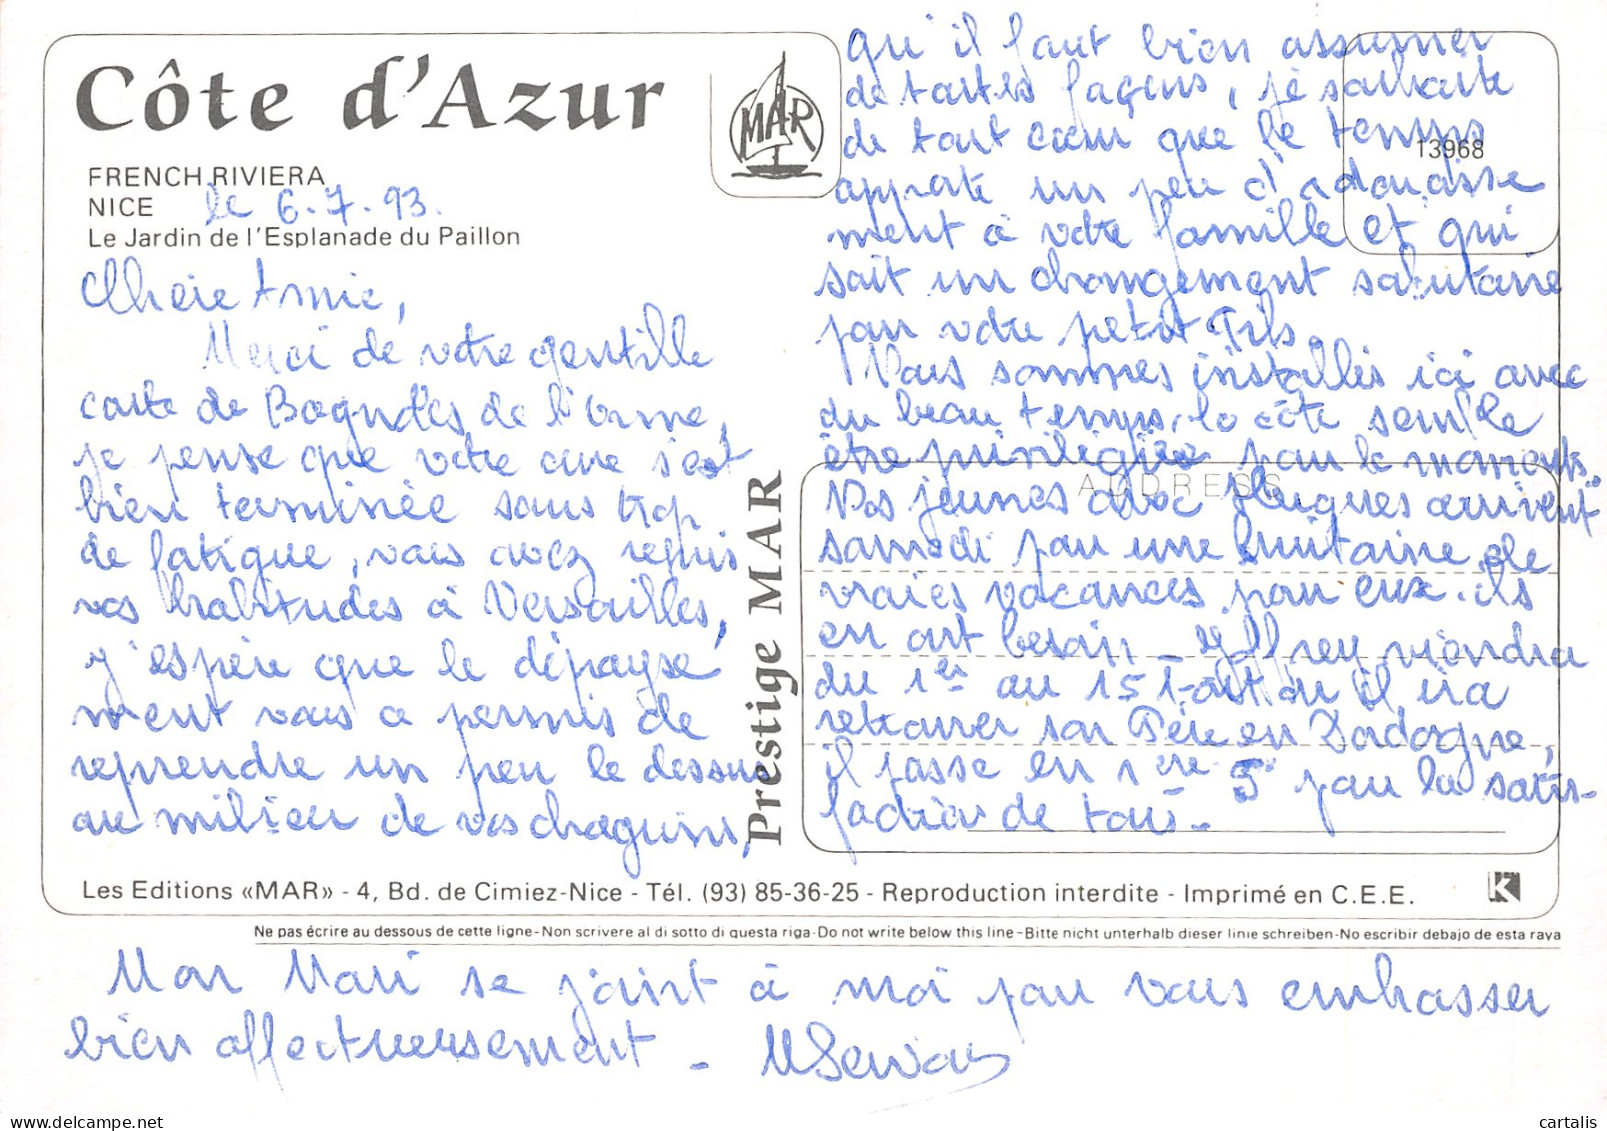 Côte d'Azur
MAR
FRENCH RIVIERA
NICE
le 6.7.93.
Le Jardin de l'Esplanade du Paillon
Chère Amie,
Merci de votre gentille
carte de Bagnoles de l'Orne,
je pense que votre cure s'est
bien terminée sans trop
de fatigue, vous avez repris
vos habitudes à Versailles,
j'espère que le dépayse
ment vous a permis de
reprendre un peu le dessus
au milieu de vos chagrins,
Prestige MAR
qu'il faut bien assumer
de toutes façons, je souhaite
de tout cœur que le temps
13968
apporte un peu d'adoucisse
ment à votre famille et qui
soit un changement salutaire
pour votre petit Fils.
Nous sommes installés ici avec
du beau temps, la côte semble
être privilégiée pour le moment.
ADDRESS
Nos jeunes avec arrivent
samedi pour une huitaine de
vraies vacances pour eux. ils
en ont besoin - viendra
du 1er au 15 Août où il ira
retrouver son Père en Dordogne,
il passe en 1ère S pour la satis-
faction de tous -
Les Editions «MAR» - 4, Bd. de Cimiez-Nice - Tél. (93) 85-36-25 - Reproduction interdite - Imprimé en C.E.E.
K
Ne pas écrire au dessous de cette ligne-Non scrivere al di sotto di questa riga-Do not write below this line-Bitte nicht unterhalb dieser linie schreiben-No escribir debajo de esta raya
Mon Mari se joint à moi pour vous embrasser
bien affectueusement -
cartalis